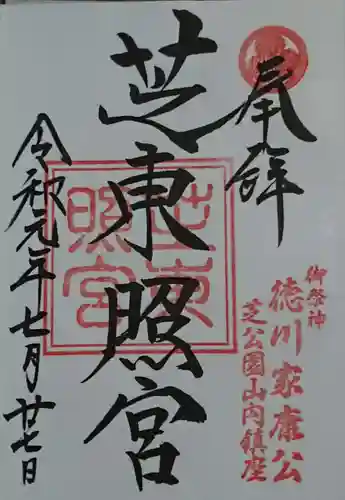 奉拝
御祭神
徳川家康公
芝公園山内鎮座
芝東照宮
芝東照宮
令和元年七月廿七日